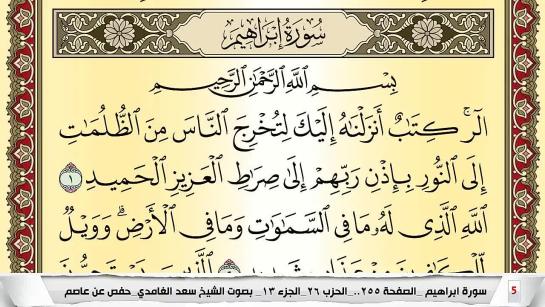 سُورَةُ إِبْرَاهِيمَ
بِسْمِ اللَّهِ الرَّحْمَٰنِ الرَّحِيمِ
الٓرۚ كِتَٰبٌ أَنزَلْنَٰهُ إِلَيْكَ لِتُخْرِجَ ٱلنَّاسَ مِنَ ٱلظُّلُمَٰتِ
إِلَى ٱلنُّورِ بِإِذْنِ رَبِّهِمْ إِلَىٰ صِرَٰطِ ٱلْعَزِيزِ ٱلْحَمِيدِ ١
ٱللَّهِ ٱلَّذِى لَهُۥ مَا فِى ٱلسَّمَٰوَٰتِ وَمَا فِى ٱلْأَرْضِۗ وَوَيْلٌ
لِّلْكَٰفِرِينَ مِنْ عَذَابٍ شَدِيدٍ ٱلَّذِينَ يَسْتَحِبُّونَ
سورة ابراهيم _الصفحة ٢٥٥_.. الحزب ٢٦_ الجزء ١٣_ بصوت الشيخ سعد الغامدي_ حفص عن عاصم
5